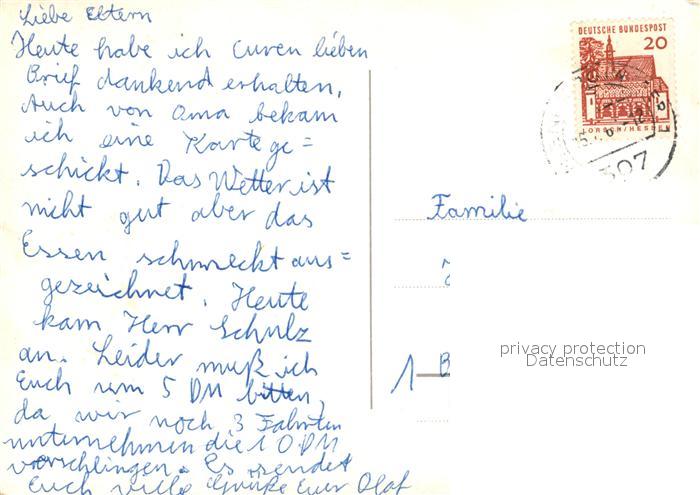 Liebe Eltern
Heute habe ich Euren lieben
Brief dankend erhalten,
Auch von Oma bekam
ich eine Karte ge=
schickt. Das Wetter ist
nicht gut aber das
Essen schmeckt aus=
gezeichnet. Heute
kam Herr Schulz
an. Leider muß ich
Euch um 5 DM bitten,
da wir noch 3 Fahrten
unternehmen die 10 DM
verschlingen. Es sendet
Euch viele Grüße Euer Olaf
DEUTSCHE BUNDESPOST
20
LORSCH/HESSEN
307
Familie
1 B
privacy protection
Datenschutz